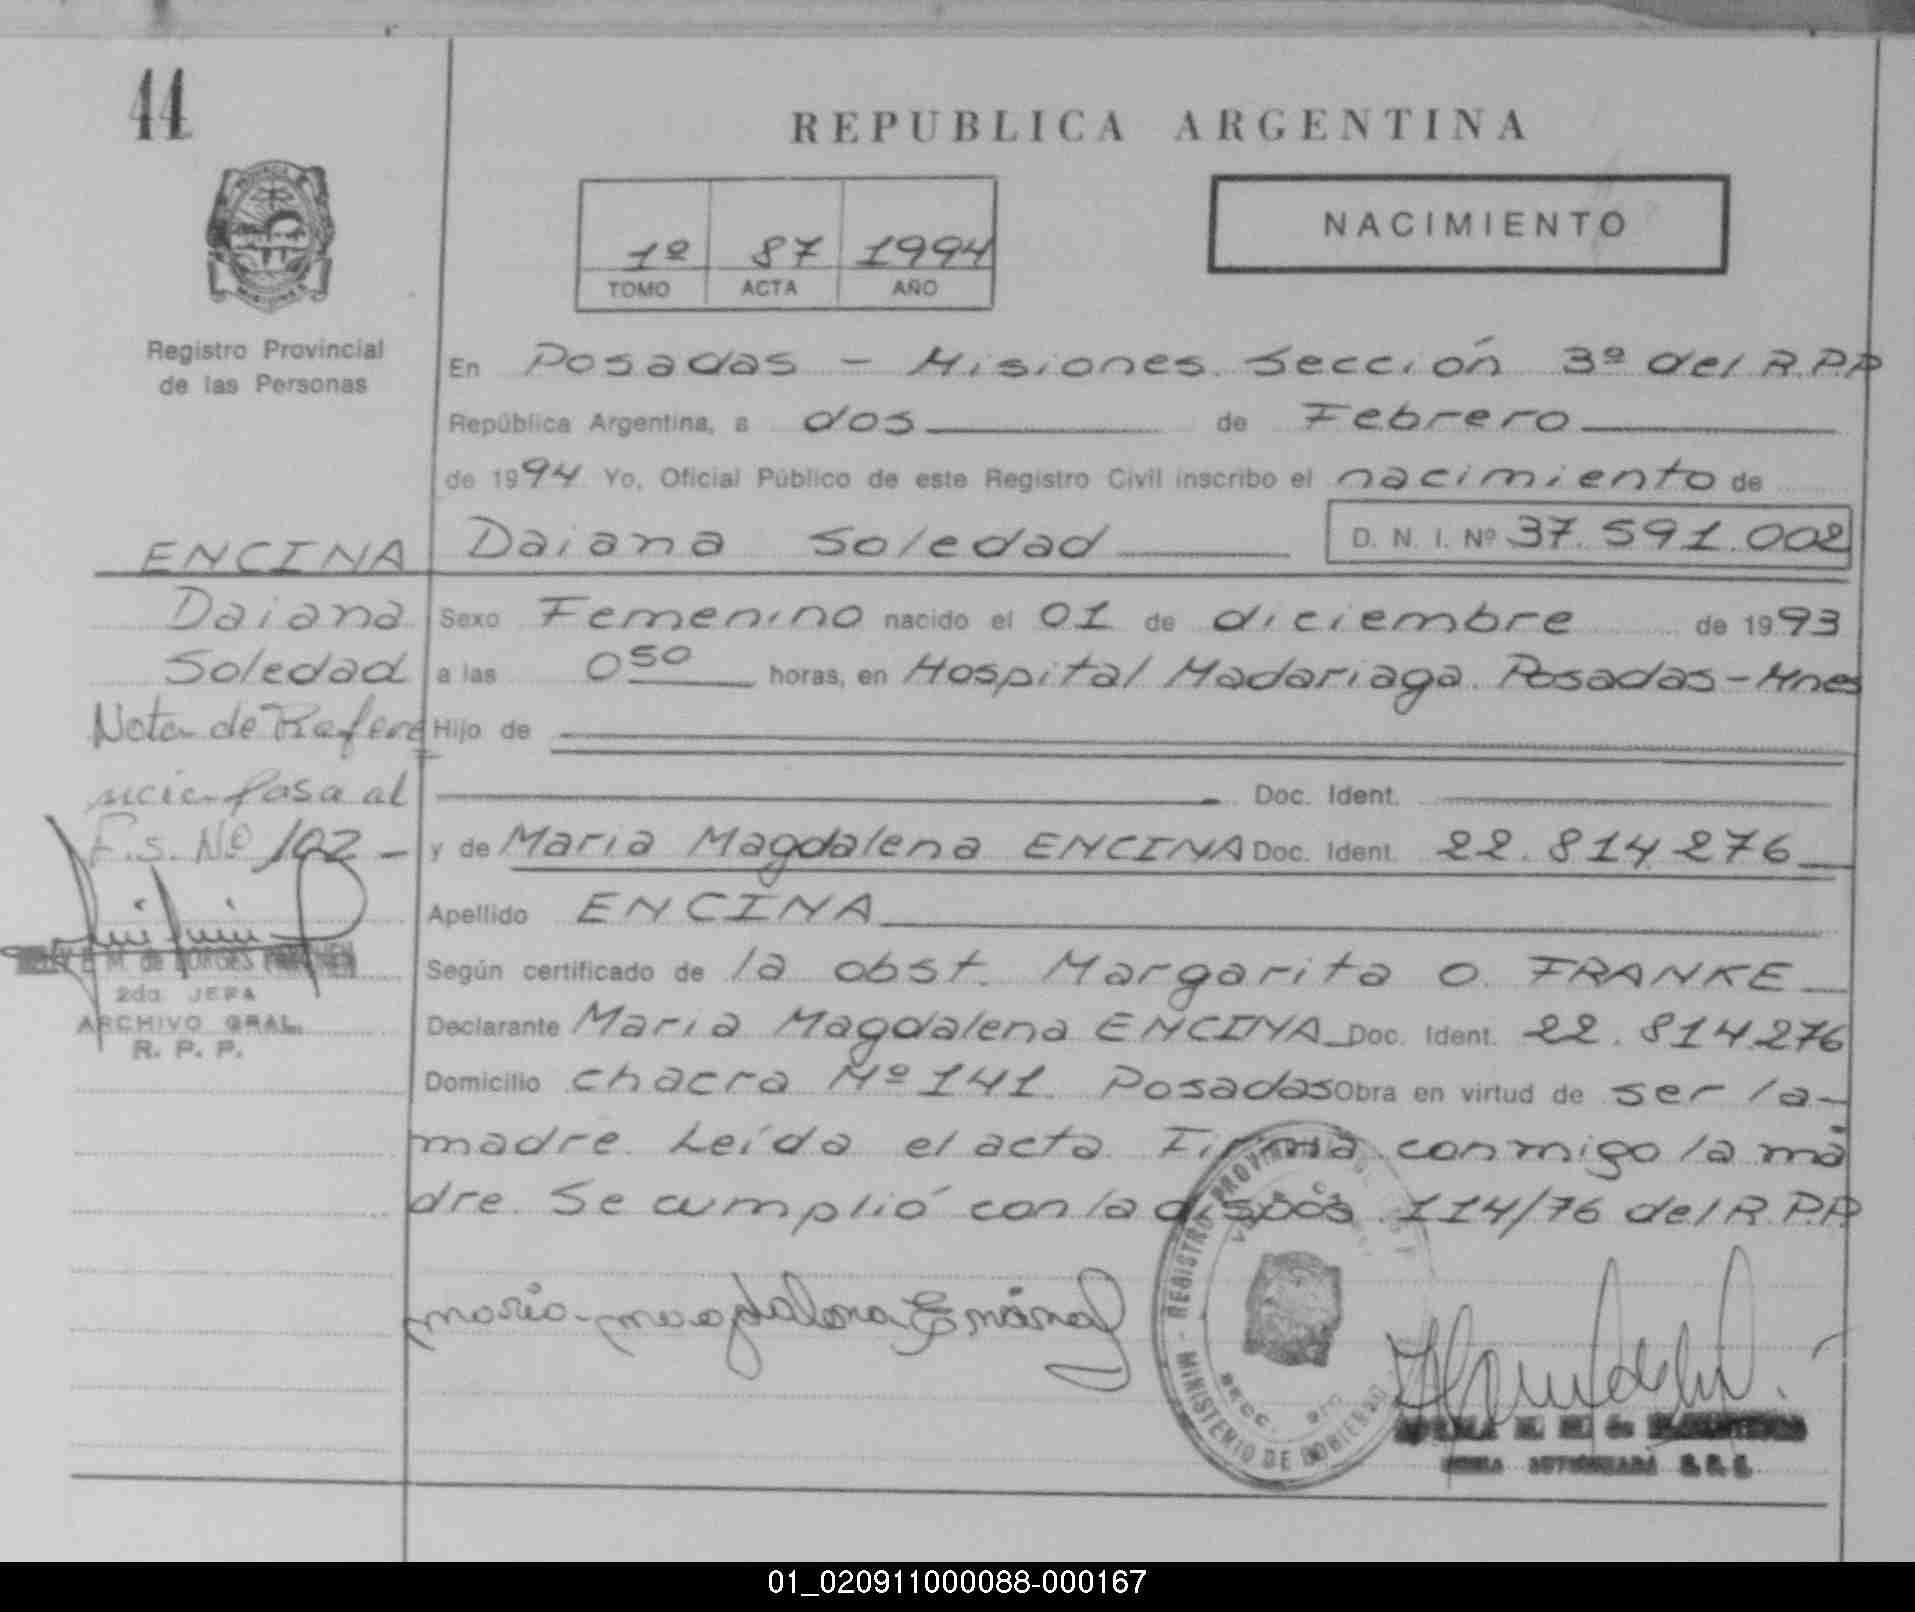 44
REPUBLICA ARGENTINA
NACIMIENTO
1º 87 1994
TOMO ACTA AÑO
MISIONES
Registro Provincial
de las Personas
En Posadas - Misiones. Sección 3º del R.P.P
República Argentina, a dos de Febrero
de 1994 Yo, Oficial Público de este Registro Civil inscribo el nacimiento de
Daiana Soledad D. N. I. Nº 37.591.002
ENCINA
Daiana
Soledad
Nota de Refere
ncia pasa al
F.s. Nº 102 -
2da. JEFA
ARCHIVO GRAL.
R. P. P.
Sexo Femenino nacido el 01 de diciembre de 1993
a las 0 50 horas, en Hospital Madariaga. Posadas - Mnes
Hijo de
Doc. Ident.
y de Maria Magdalena ENCINA Doc. Ident. 22.814.276
Apellido ENCINA
Según certificado de la obst. Margarita O. FRANKE
Declarante Maria Magdalena ENCINA Doc. Ident. 22.814.276
Domicilio chacra Nº 141. Posadas Obra en virtud de ser la-
madre. Leída el acta Firma conmigo la ma
dre. Se cumplió con la dispos. 114/76 del R.P.P.
maria magdalena Encina
MINISTERIO DE GOBIERNO - REGISTRO PROVINCIAL
SECC.
01_020911000088-000167